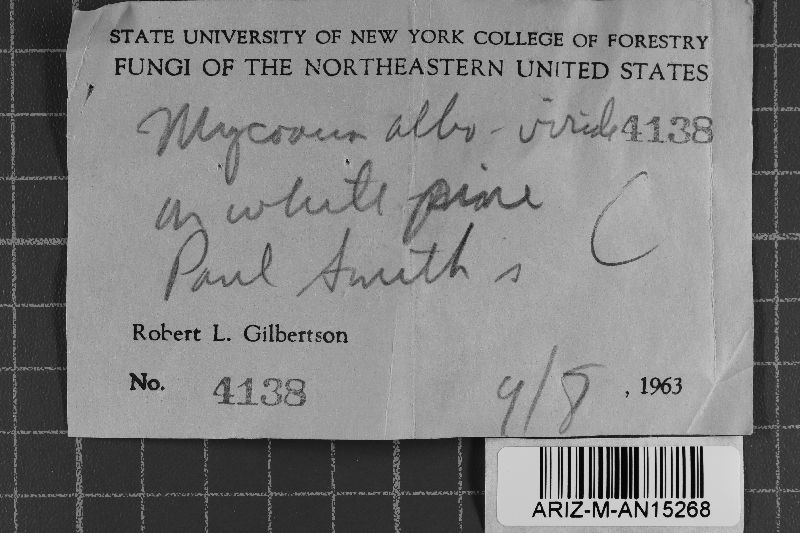 STATE UNIVERSITY OF NEW YORK COLLEGE OF FORESTRY
FUNGI OF THE NORTHEASTERN UNITED STATES
albo-viride 4138
on white pine C
Paul Smith s
Robert L. Gilbertson
No. 4138 9/8, 1963
ARIZ-M-AN15268